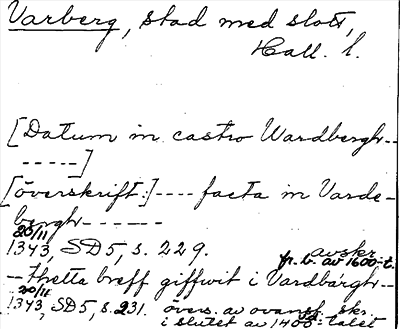 Varberg, stad med slott,
Hall. l.
[Datum in castro Wardbergh--
-----]
[överskrift:]---- facta in Varde-
bergh-------
20/11
1343, SD5, s. 229. avskr.
fr. b. av 1600-t.
-- thetta breff giffwit i Vardbärgh--
20/11
1343, SD5, s. 231. övers. av ovanst. skr.
i slutet av 1400-talet